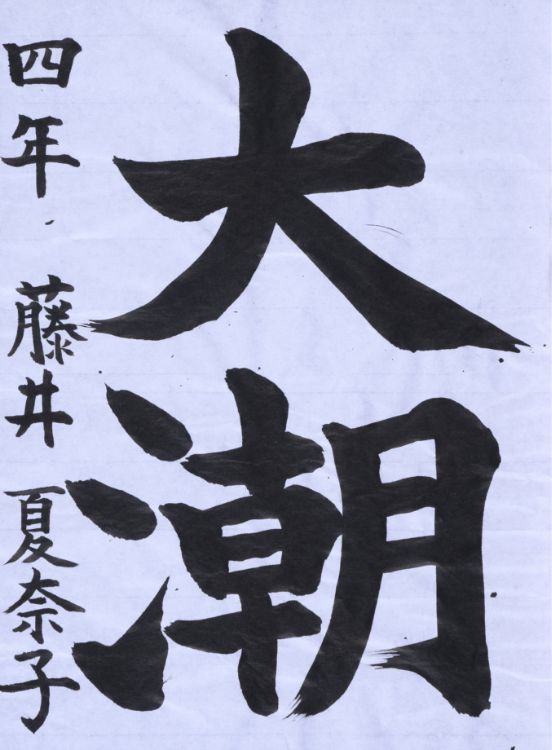 大潮
四年 藤井 夏奈子